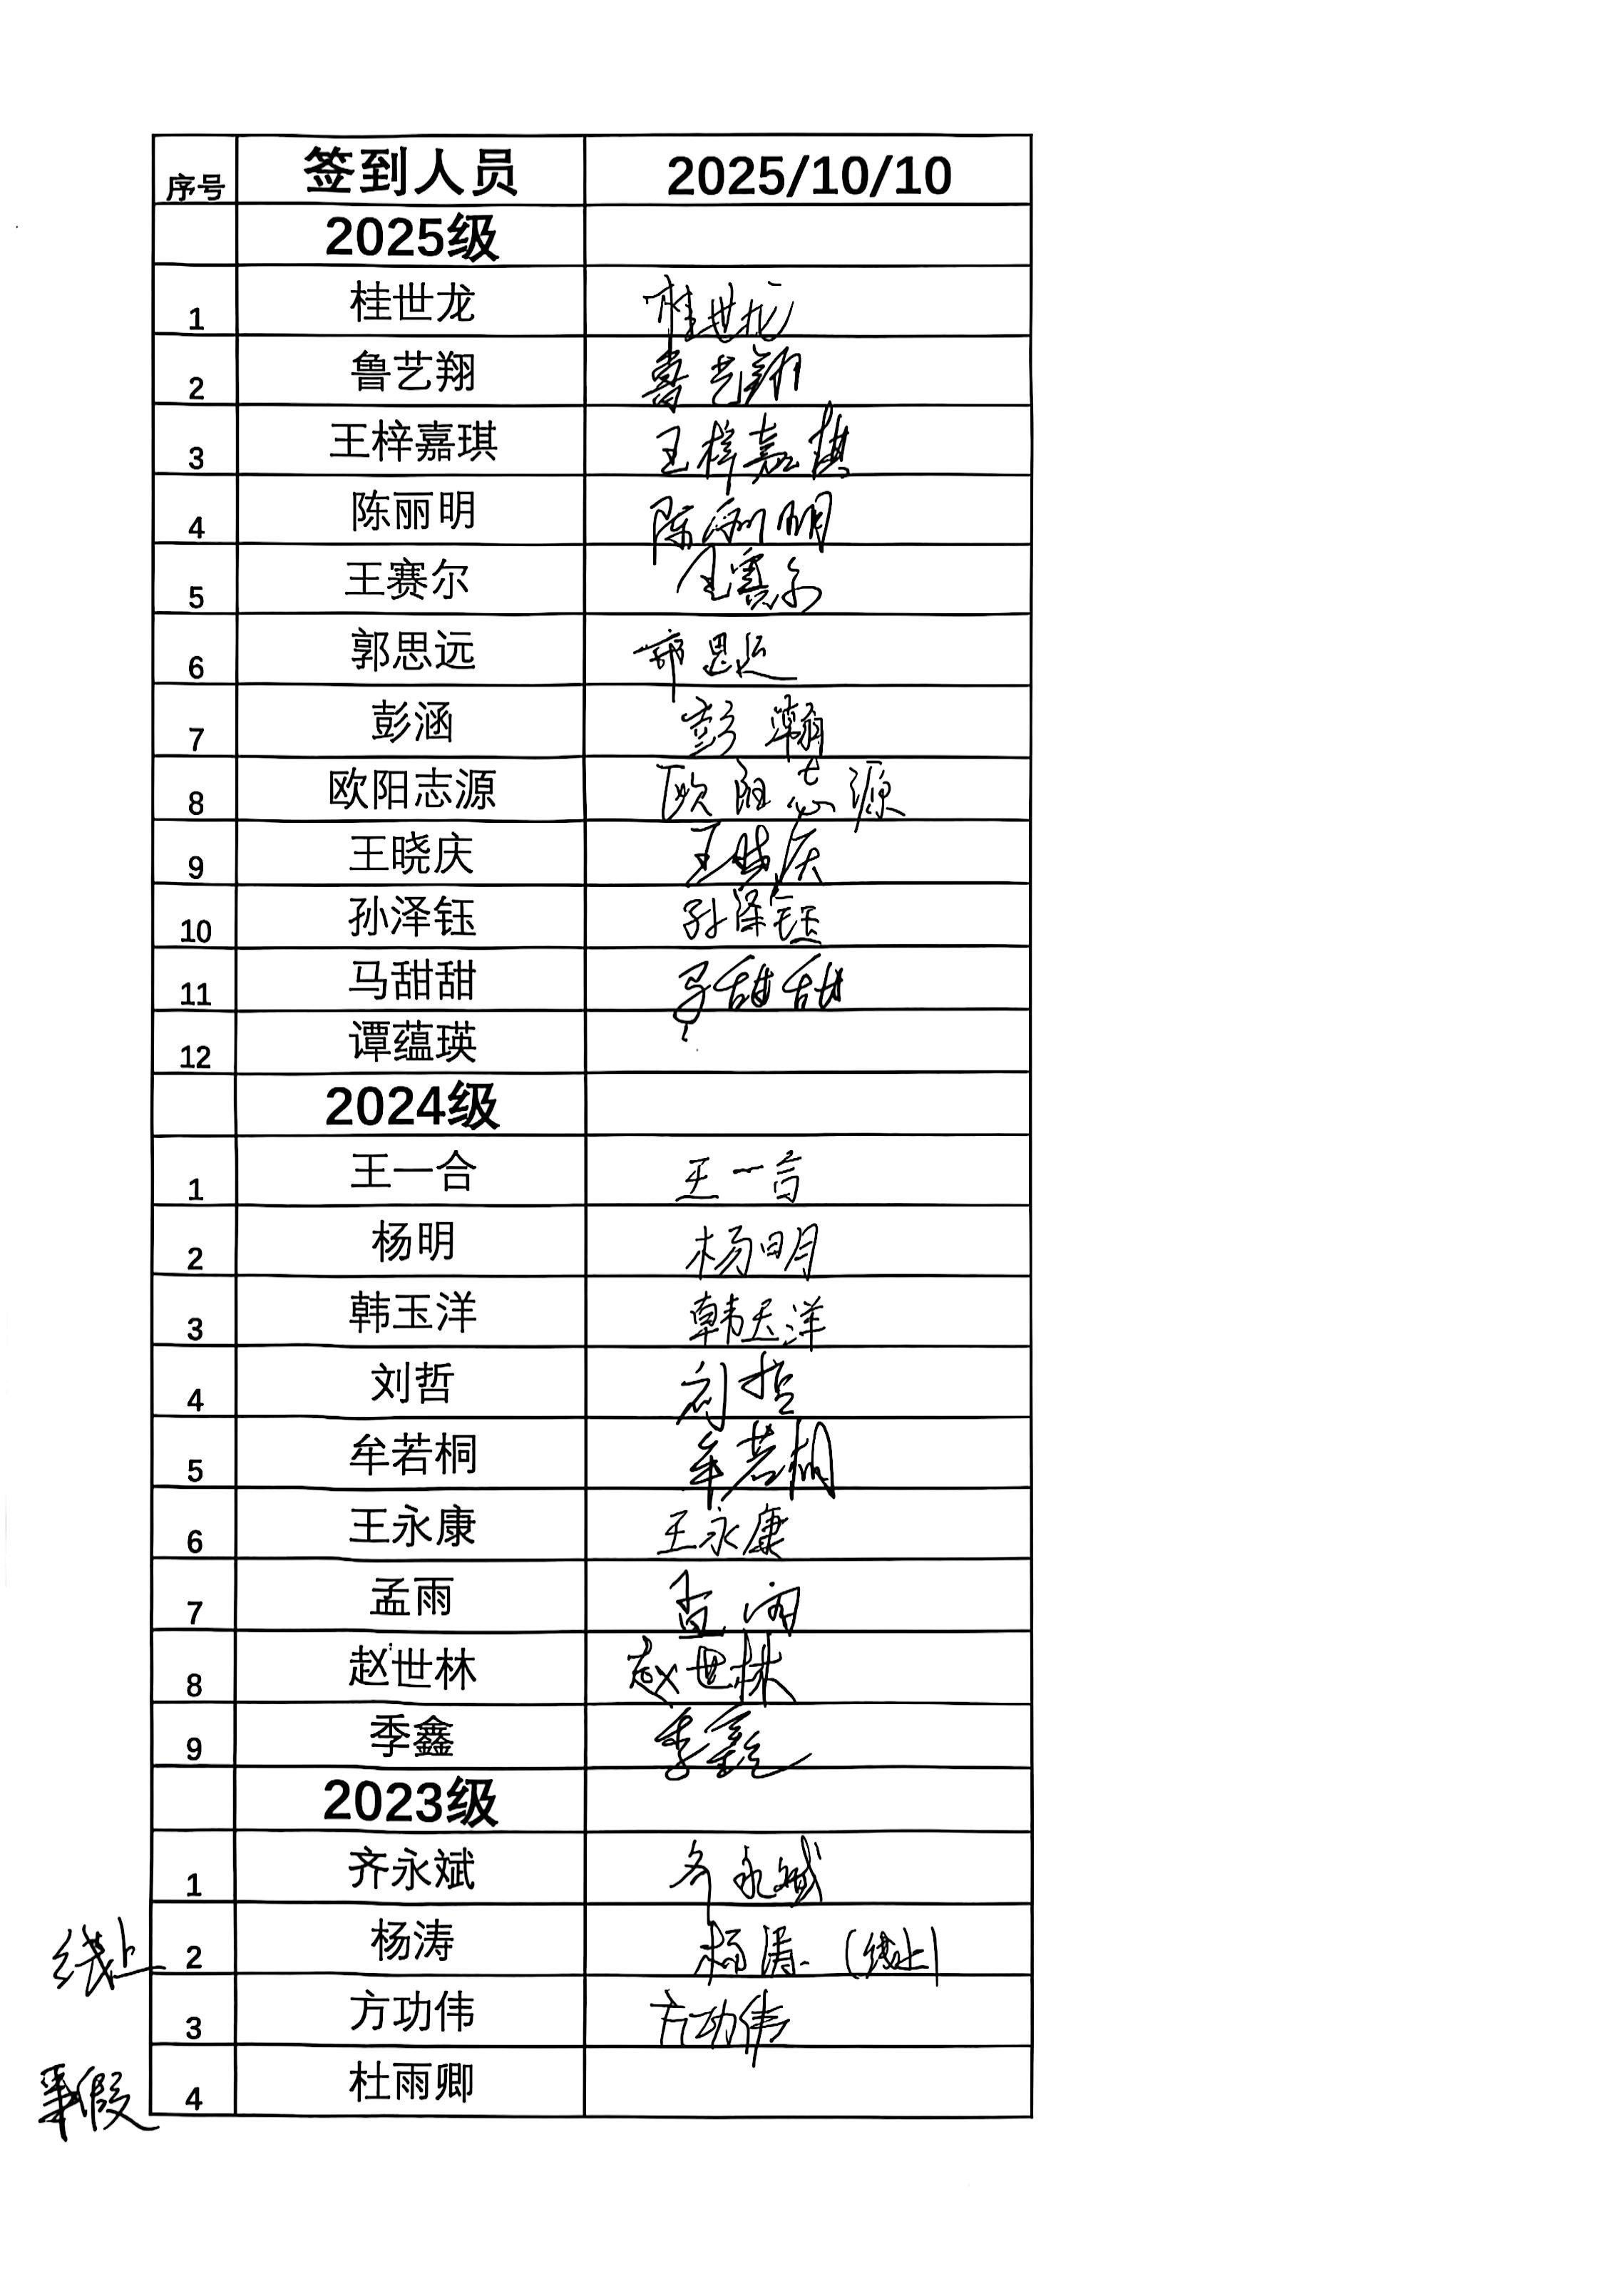 序号 签到人员 2025/10/10
2025级
1 桂世龙 桂世龙
2 鲁艺翔 鲁艺翔
3 王梓嘉琪 王梓嘉琪
4 陈丽明 陈丽明
5 王赛尔 王赛尔
6 郭思远 郭思远
7 彭涵 彭瀚
8 欧阳志源 欧阳志源
9 王晓庆 王晓庆
10 孙泽钰 孙泽钰
11 马甜甜 马甜甜
12 谭蕴瑛
2024级
1 王一合 王一合
2 杨明 杨明
3 韩玉洋 韩玉洋
4 刘哲 刘哲
5 牟若桐 牟若桐
6 王永康 王永康
7 孟雨 孟雨
8 赵世林 赵世林
9 季鑫 季鑫
2023级
1 齐永斌 齐永斌
线上 2 杨涛 杨涛(线上)
3 方功伟 方功伟
事假 4 杜雨卿